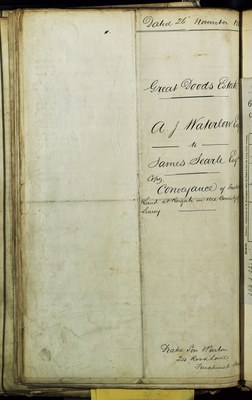 Dated 26 November
Great Doods Estate
A J Waterlow
to
James Searle Esq
Copy
Conveyance of
Land at Reigate in the County
Surrey
Drake Son & Parton
24 Rood Lane